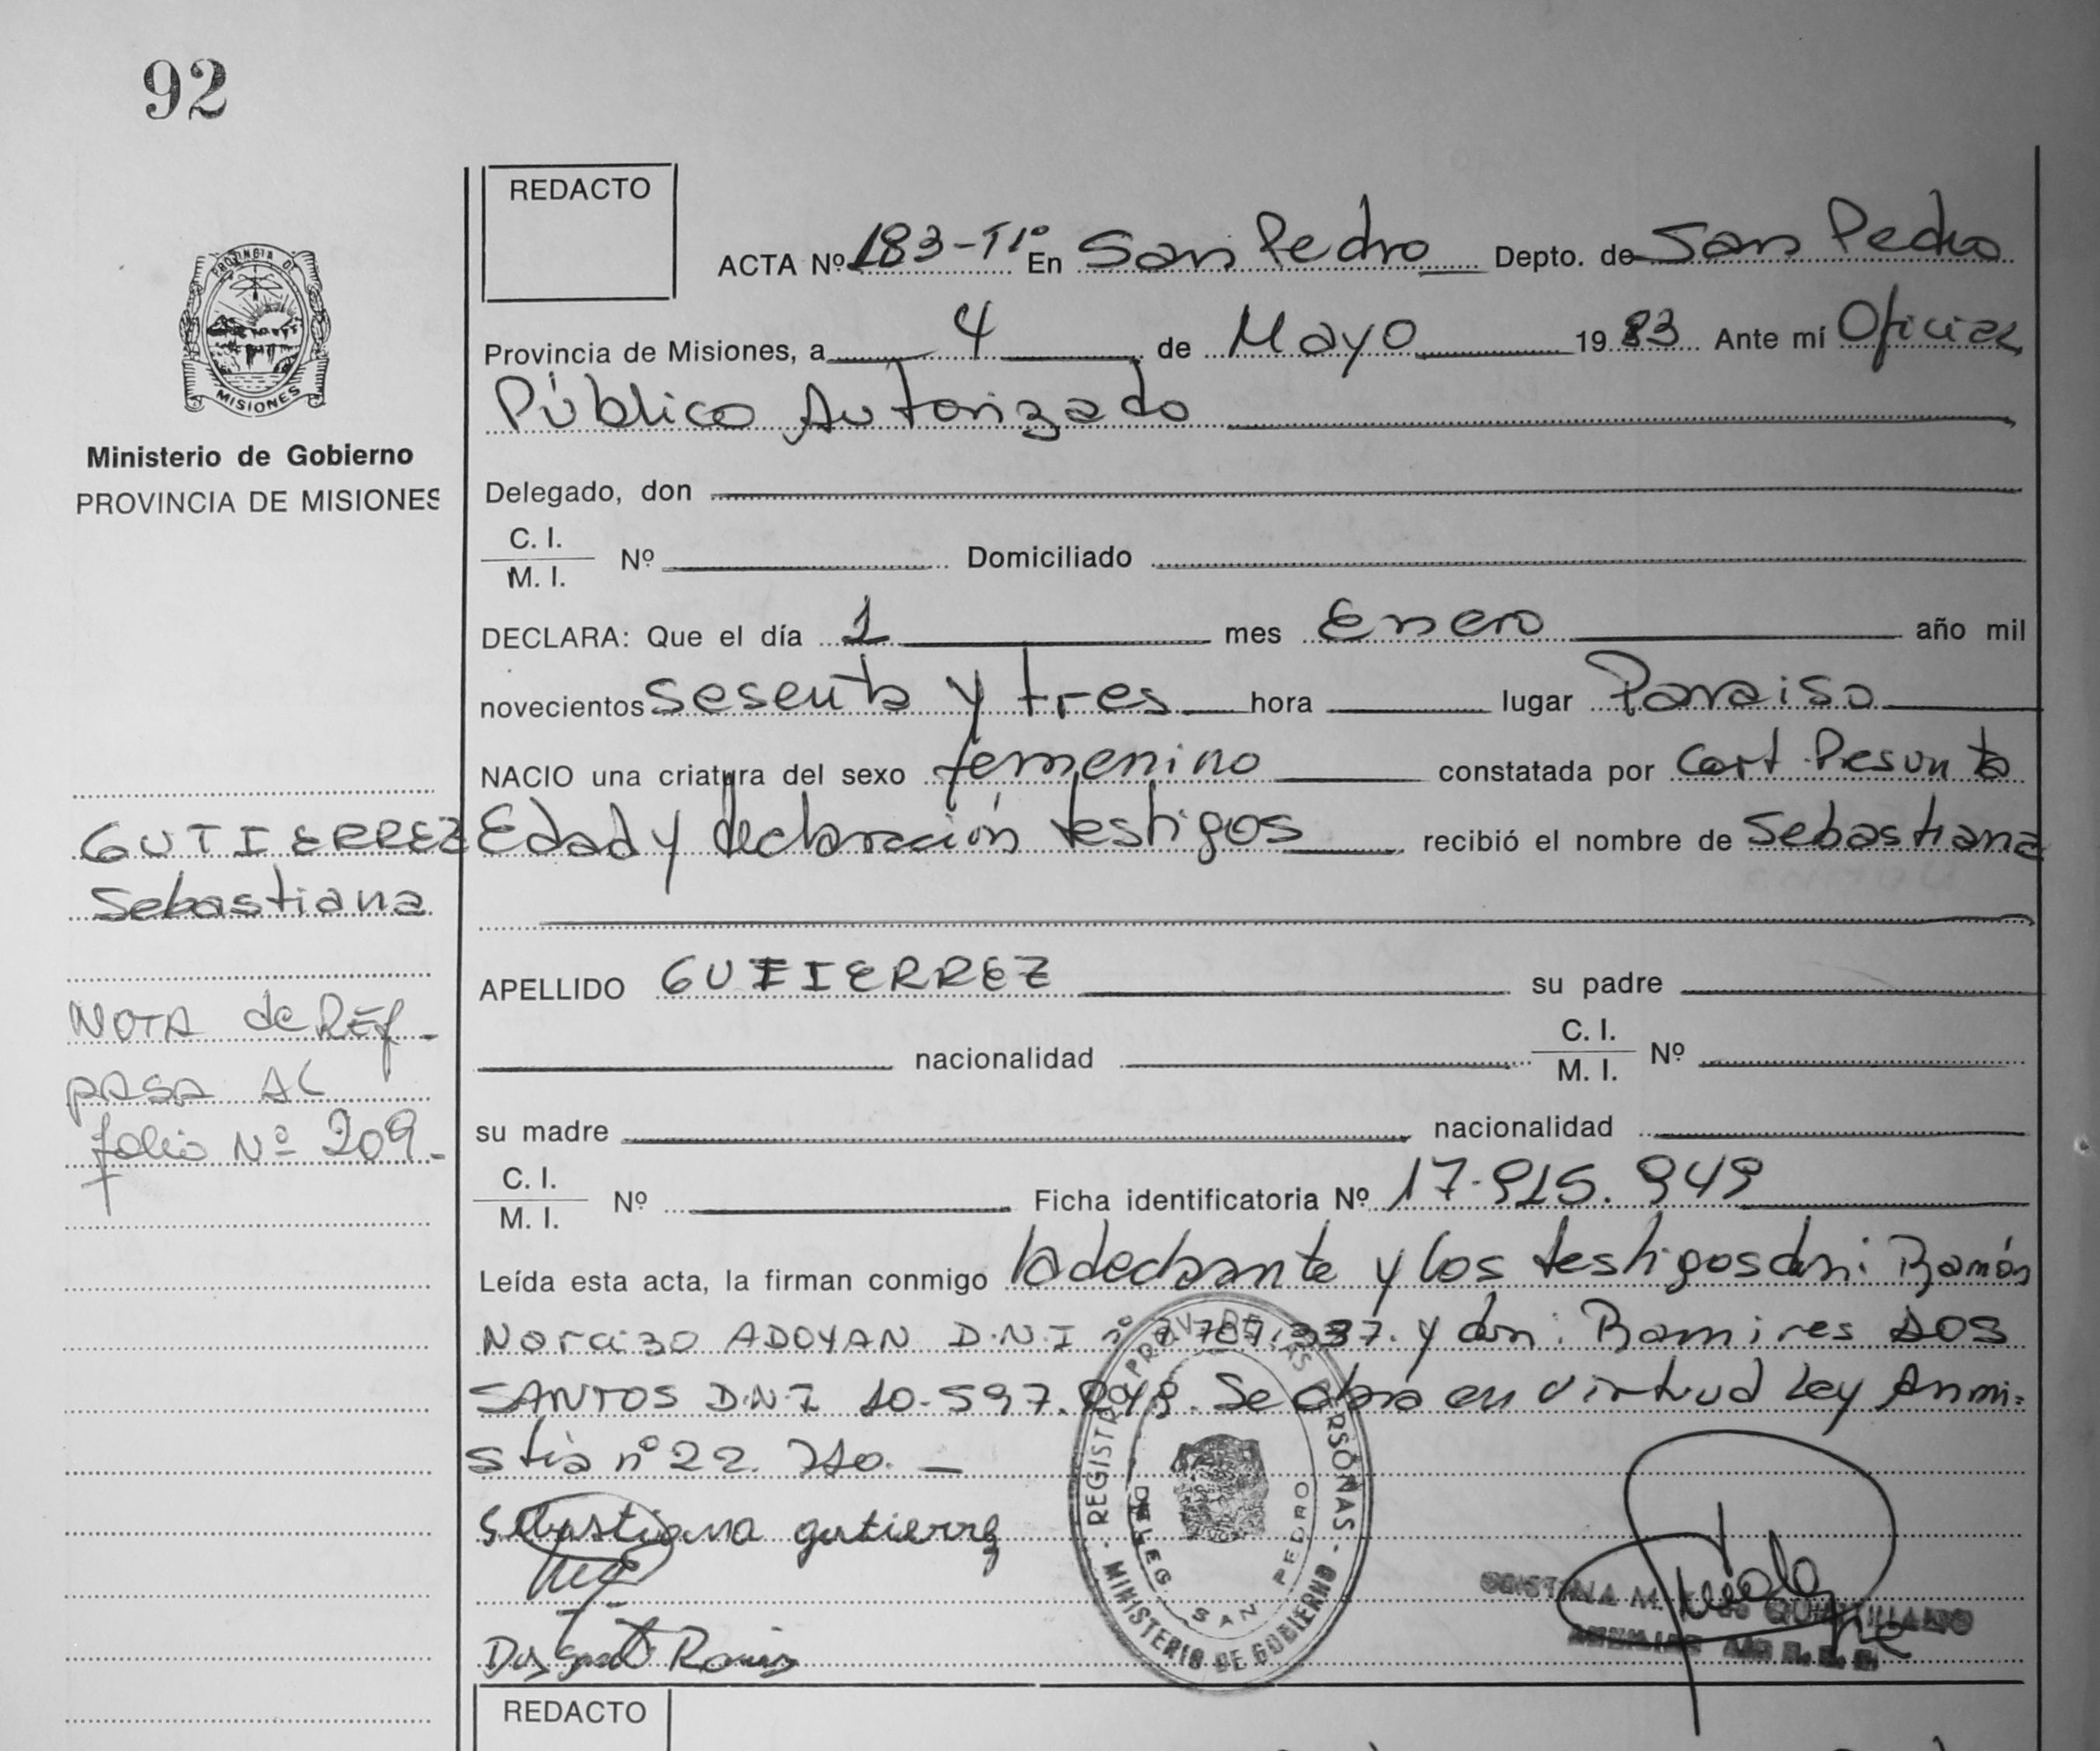 92
REDACTO
ACTA Nº 183-Tº En San Pedro Depto. de San Pedro
Provincia de Misiones, a 4 de Mayo 1983 Ante mí Oficial
Público Autorizado
PROVINCIA DE
MISIONES
Ministerio de Gobierno
PROVINCIA DE MISIONES
Delegado, don
C. I.
M. I. Nº Domiciliado
DECLARA: Que el día 1 mes Enero año mil
novecientos sesenta y tres hora lugar Paraiso
NACIO una criatura del sexo femenino constatada por Cert. Presunta
Edad y declaración testigos recibió el nombre de Sebastiana
GUTIERREZ
Sebastiana
APELLIDO GUTIERREZ su padre
nacionalidad C. I.
M. I. Nº
NOTA de REF-
PASA AL
folio Nº 209.-
su madre nacionalidad
C. I.
M. I. Nº Ficha identificatoria Nº 17.915.949
Leída esta acta, la firman conmigo la declarante y los testigos don: Ramón
Narcizo ADOYAN D.N.I nº 7.787.337. y don: Ramires DOS
SANTOS D.N.I 10.597.049. Se labra en virtud Ley Anmi-
stia nº 22.
Sebastiana gutierrez
REGIST PROV. DE LAS PERSONAS
DELEG. SAN PEDRO
MINISTERIO DE GOBIERNO
QUINTILLANO
REDACTO